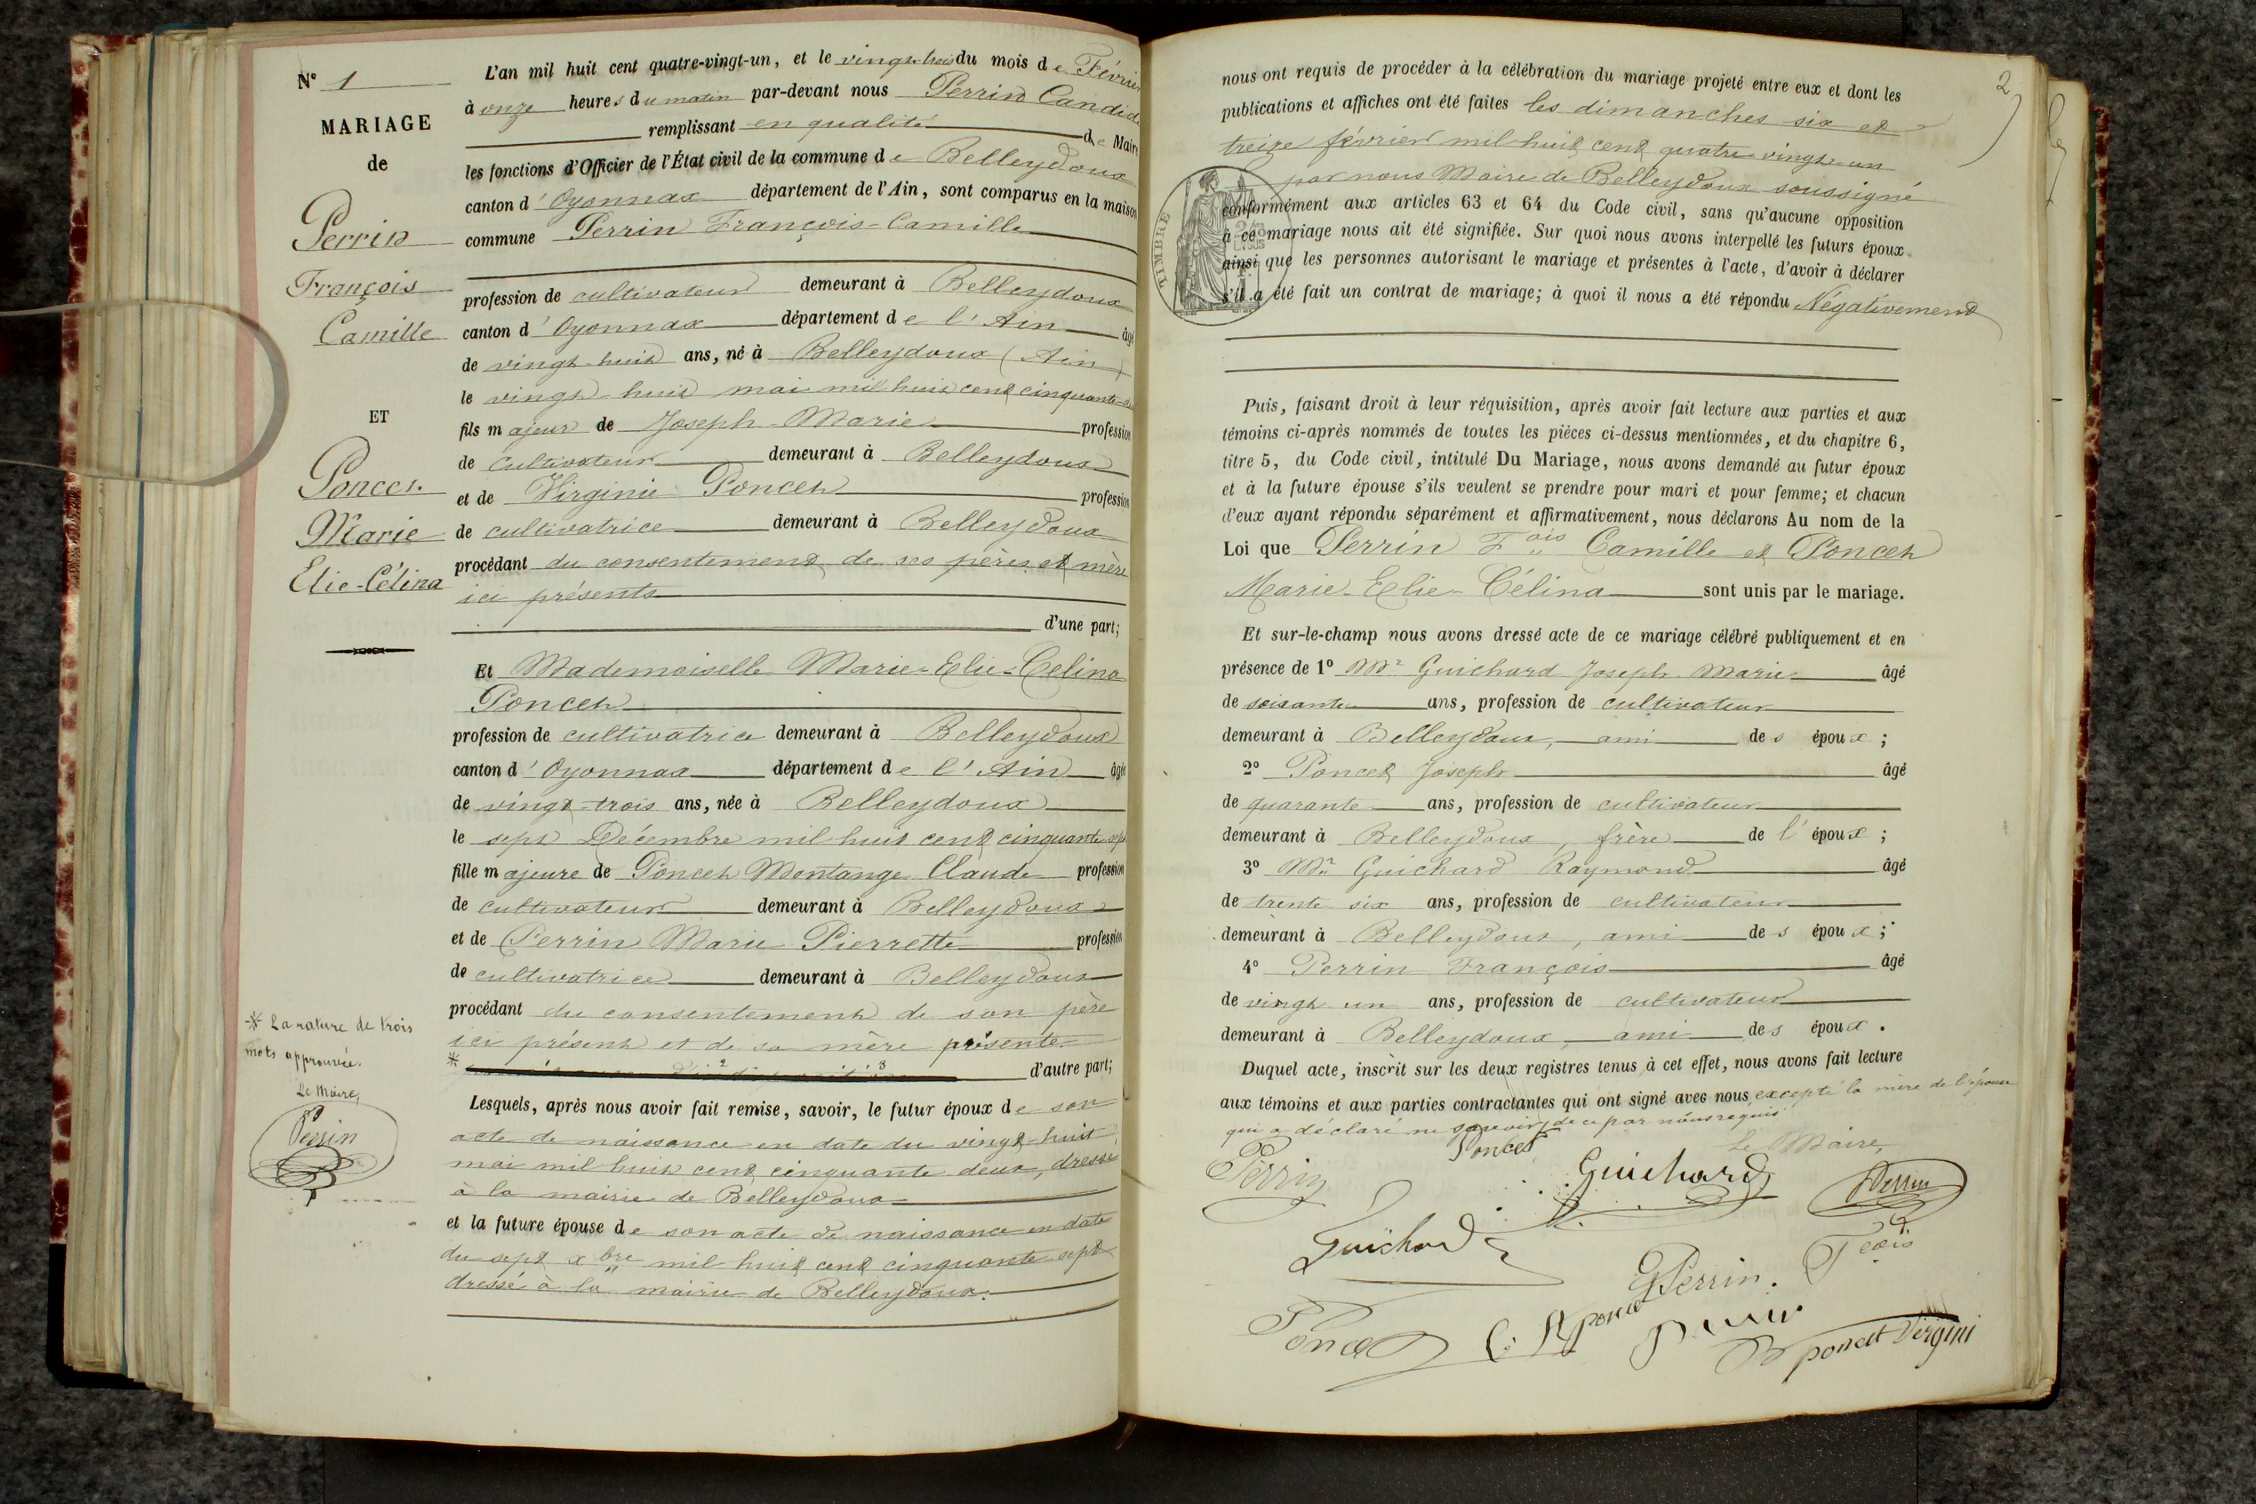 N° 1
MARIAGE
de
Perrin
François
Camille
ET
Poncet
Marie
Elie-Célina
* La rature de trois
mots approuvée.
Le Maire,
Perrin
L'an mil huit cent quatre-vingt-un, et le vingt-trois du mois de Février
à onze heures du matin par-devant nous Perrin Candide
remplissant en qualité de Maire
les fonctions d'Officier de l'État civil de la commune de Belleydoux
canton d'Oyonnax département de l'Ain, sont comparus en la maison
commune Perrin François-Camille
profession de cultivateur demeurant à Belleydoux
canton d'Oyonnax département de l'Ain âgé
de vingt-huit ans, né à Belleydoux (Ain)
le vingt-huit mai mil huit cent cinquante-deux
fils majeur de Joseph-Marie profession
de cultivateur demeurant à Belleydoux
et de Virginie Poncet profession
de cultivatrice demeurant à Belleydoux
procédant du consentement de ses pères et mère
ici présents
d'une part;
Et Mademoiselle Marie-Elie-Celina
Poncet
profession de cultivatrice demeurant à Belleydoux
canton d'Oyonnax département de l'Ain âgée
de vingt-trois ans, née à Belleydoux
le sept Décembre mil huit cent cinquante sept
fille majeure de Poncet Montange Claude profession
de cultivateur demeurant à Belleydoux
et de Perrin Marie Pierrette profession
de cultivatrice demeurant à Belleydoux
procédant du consentement de son père
ici présent et de sa mère présente
* d'autre part;
Lesquels, après nous avoir fait remise, savoir, le futur époux de son
acte de naissance en date du vingt-huit
mai mil huit cent cinquante deux, dressé
à la mairie de Belleydoux
et la future épouse de son acte de naissance en date
du sept xbre mil huit cent cinquante sept
dressé à la mairie de Belleydoux.
2
nous ont requis de procéder à la célébration du mariage projeté entre eux et dont les
publications et affiches ont été faites les dimanches six et
treize février mil huit cent quatre vingt-un
par nous Maire de Belleydoux soussigné
TIMBRE
conformément aux articles 63 et 64 du Code civil, sans qu'aucune opposition
à ce mariage nous ait été signifiée. Sur quoi nous avons interpellé les futurs époux
ainsi que les personnes autorisant le mariage et présentes à l'acte, d'avoir à déclarer
s'il a été fait un contrat de mariage; à quoi il nous a été répondu Négativement
Puis, faisant droit à leur réquisition, après avoir fait lecture aux parties et aux
témoins ci-après nommés de toutes les pièces ci-dessus mentionnées, et du chapitre 6,
titre 5, du Code civil, intitulé Du Mariage, nous avons demandé au futur époux
et à la future épouse s'ils veulent se prendre pour mari et pour femme; et chacun
d'eux ayant répondu séparément et affirmativement, nous déclarons Au nom de la
Loi que Perrin Fois Camille et Poncet
Marie-Elie-Célina sont unis par le mariage.
Et sur-le-champ nous avons dressé acte de ce mariage célébré publiquement et en
présence de 1° Mr Guichard Joseph Marie âgé
de soixante ans, profession de cultivateur
demeurant à Belleydoux, ami des époux;
2° Poncet Joseph âgé
de quarante ans, profession de cultivateur
demeurant à Belleydoux, frère de l'époux;
3° Mr Guichard Raymond âgé
de trente six ans, profession de cultivateur
demeurant à Belleydoux, ami des époux;
4° Perrin François âgé
de vingt un ans, profession de cultivateur
demeurant à Belleydoux, ami des époux.
Duquel acte, inscrit sur les deux registres tenus à cet effet, nous avons fait lecture
aux témoins et aux parties contractantes qui ont signé avec nous, excepté la mère de l'épouse
qui a déclaré ne savoir, de ce par nous requis
Le Maire,
Perrin Poncet Guichard Perrin
Guichard
G Perrin. Fcois
Poncet C. Poncet Perrin
poncet Virgini